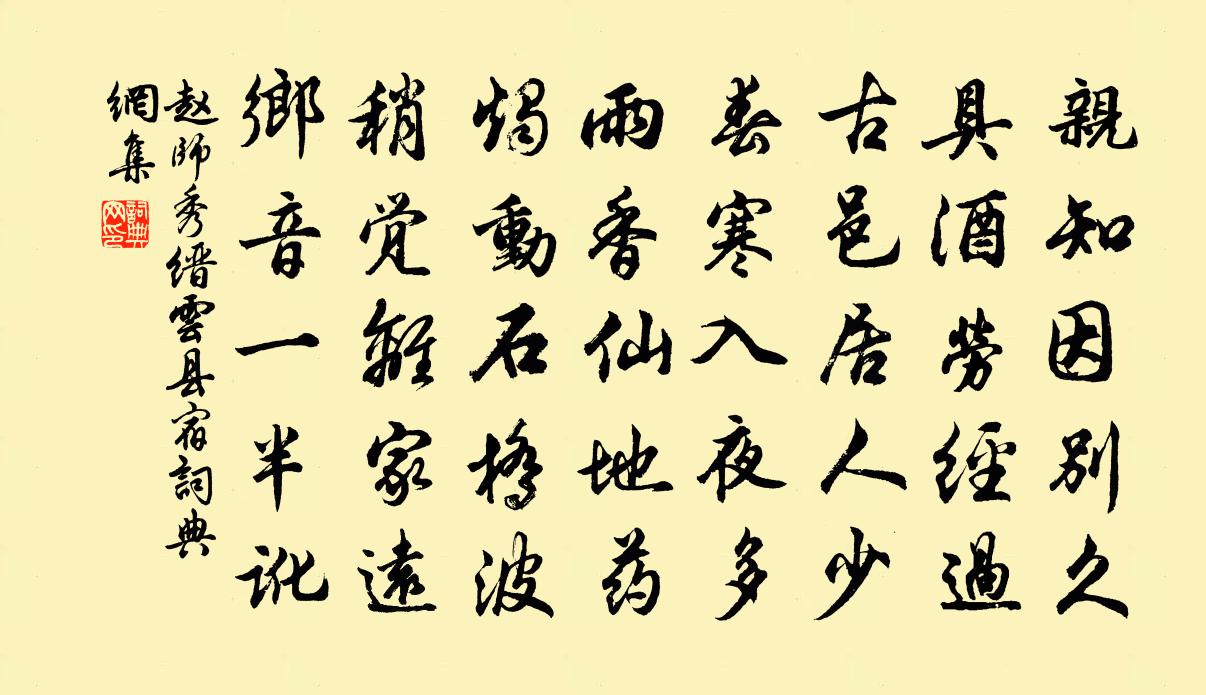 親知因別久
具酒勞經過
古邑居人少
春寒入夜多
雨香仙地药
燭動石橋波
稍觉離家遠
鄉音一半訛
赵師秀縉雲县宿詞典
網集
詞典
网印